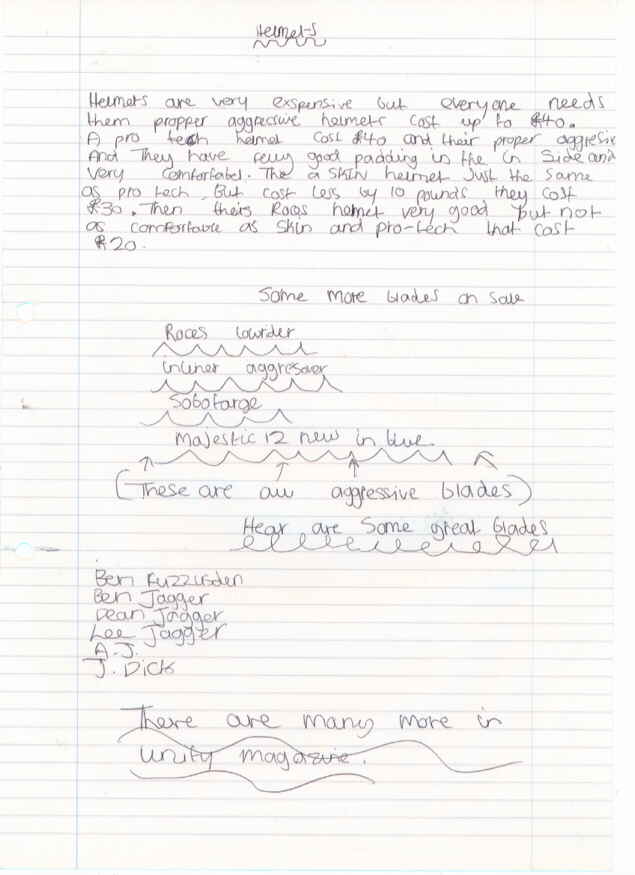 Helmets
Helmets are very exspensive but everyone needs
them propper aggressive helmets cost up to £40.
A pro tech helmet cost £40 and their proper aggresiv
And They have very good padding in the in Side and
very comfortabel. The a skin helmet Just the same
as pro tech. But cost less by 10 pounds they cost
£30. Then theirs Roces helmet very good but not
as comfortable as Skin and pro-tech that cost
£20.
Some more blades on sale
Roces lowrider
inliner aggresser
Sobotarge
Majestic 12 new in blue.
(These are all aggressive blades)
Hear are Some great blades
Ben
Ben Jagger
Dean Jagger
Lee Jagger
A.J.
J. Dick
There are many more in
unity magazie.